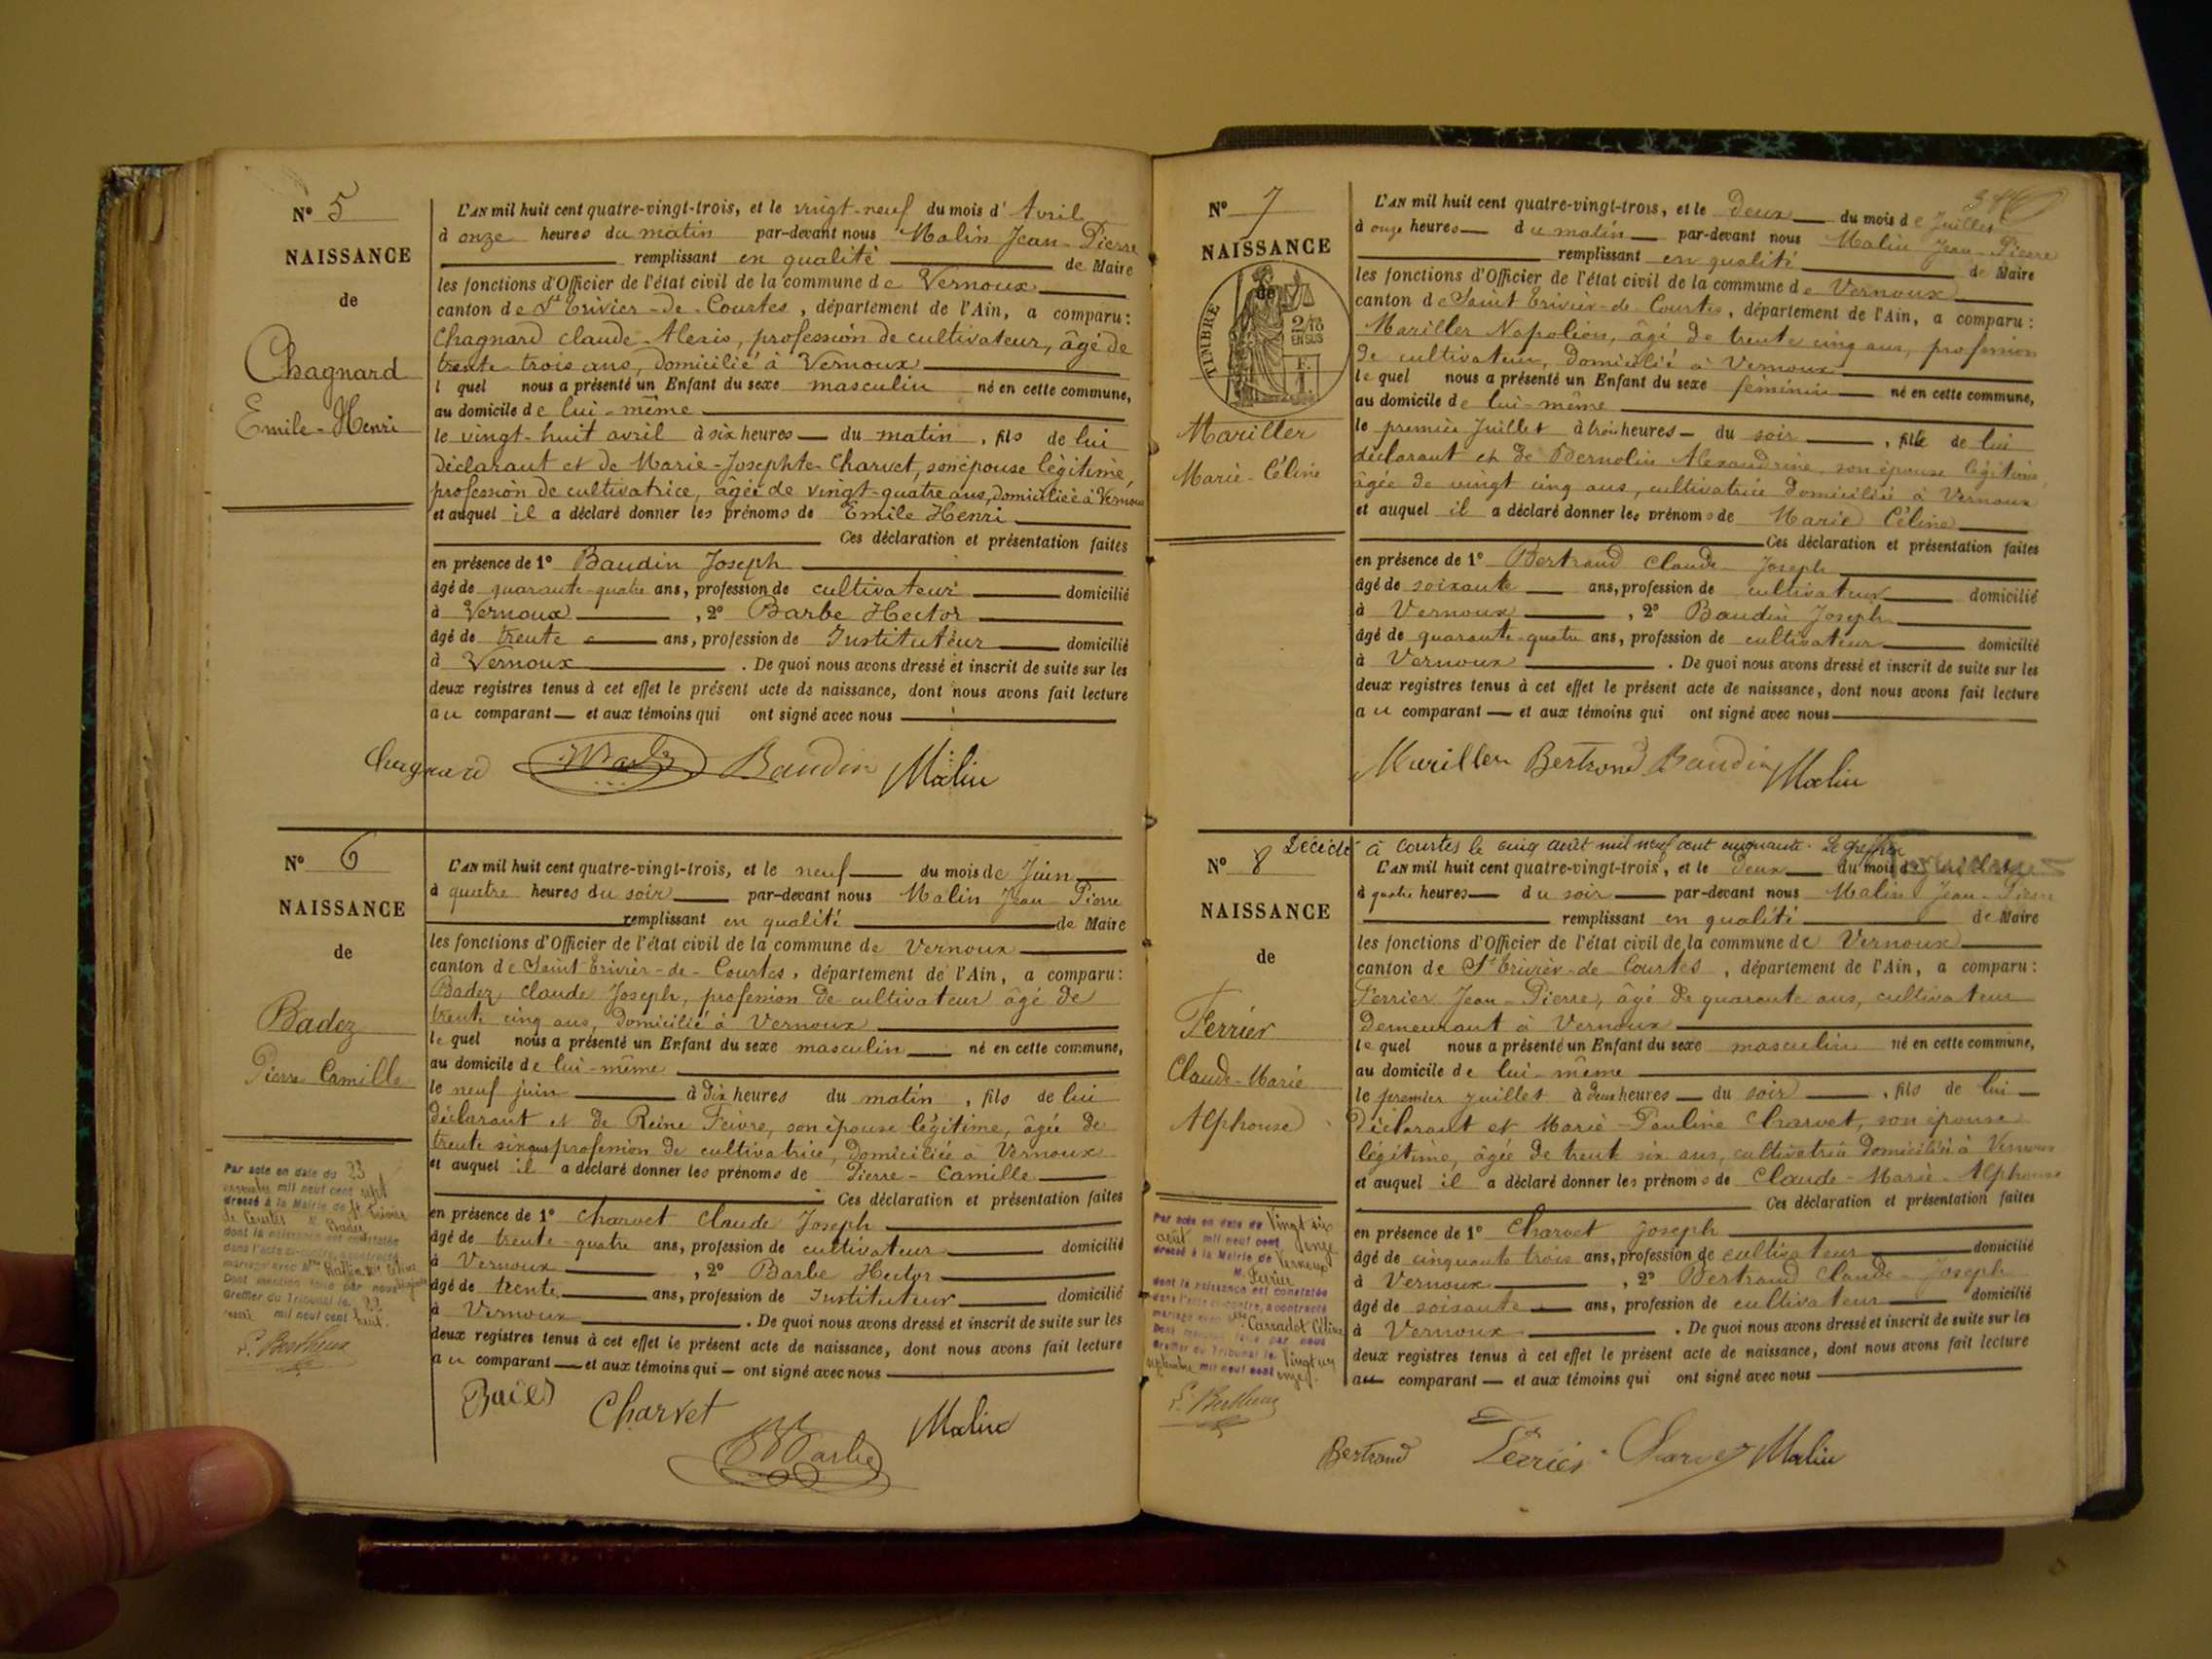 N° 5
NAISSANCE
de
Chagnard
Emile-Henri
L'AN mil huit cent quatre-vingt-trois, et le vingt-neuf du mois d' Avril
à onze heures du matin par-devant nous Malin Jean-Pierre
remplissant en qualité de Maire
les fonctions d'Officier de l'état civil de la commune de Vernoux
canton de St Trivier-de-Courtes, département de l'Ain, a comparu:
Chagnard Claude-Alexis, profession de cultivateur, âgé de
trente-trois ans, domicilié à Vernoux
l quel nous a présenté un Enfant du sexe masculin né en cette commune,
au domicile de lui-même
le vingt-huit avril à six heures du matin, fils de lui
déclarant et de Marie-Josephte Charvet, son épouse légitime,
profession de cultivatrice, âgée de vingt-quatre ans, domiciliée à Vernoux
et auquel il a déclaré donner les prénoms de Emile Henri
Ces déclaration et présentation faites
en présence de 1° Baudin Joseph
âgé de quarante-quatre ans, profession de cultivateur domicilié
à Vernoux, 2° Barbe Hector
âgé de trente ans, profession de Instituteur domicilié
à Vernoux. De quoi nous avons dressé et inscrit de suite sur les
deux registres tenus à cet effet le présent acte de naissance, dont nous avons fait lecture
au comparant et aux témoins qui ont signé avec nous
Chagnard Barbe Baudin Malin
N° 6
NAISSANCE
de
Badez
Pierre Camille
Par acte en date du 23
mil neuf cent sept
dressé à la Mairie de St Trivier
de Courtes M. Badez
dont la naissance est constatée
dans l'acte ci-contre, a contracté
mariage avec Mlle
Dont mention faite par nous
Greffier du Tribunal le
mil neuf cent
L'AN mil huit cent quatre-vingt-trois, et le neuf du mois de Juin
à quatre heures du soir par-devant nous Malin Jean Pierre
remplissant en qualité de Maire
les fonctions d'Officier de l'état civil de la commune de Vernoux
canton de Saint Trivier-de-Courtes, département de l'Ain, a comparu:
Badez Claude Joseph, profession de cultivateur âgé de
trente cinq ans, domicilié à Vernoux
le quel nous a présenté un Enfant du sexe masculin né en cette commune,
au domicile de lui-même
le neuf juin à dix heures du matin, fils de lui
déclarant et de Reine Feivre, son épouse légitime, âgée de
trente six ans profession de cultivatrice, domiciliée à Vernoux
et auquel il a déclaré donner les prénoms de Pierre-Camille
Ces déclaration et présentation faites
en présence de 1° Charvet Claude Joseph
âgé de trente-quatre ans, profession de cultivateur domicilié
à Vernoux, 2° Barbe Hector
âgé de trente ans, profession de Instituteur domicilié
à Vernoux. De quoi nous avons dressé et inscrit de suite sur les
deux registres tenus à cet effet le présent acte de naissance, dont nous avons fait lecture
au comparant et aux témoins qui ont signé avec nous
Charvet Barbe Malin
N° 7
NAISSANCE
de
TIMBRE
2/10
EN SUS
Mariller
Marie-Céline
L'AN mil huit cent quatre-vingt-trois, et le deux du mois de Juillet
à onze heures du matin par-devant nous Malin Jean-Pierre
remplissant en qualité de Maire
les fonctions d'Officier de l'état civil de la commune de Vernoux
canton de Saint Trivier-de-Courtes, département de l'Ain, a comparu:
Mariller Napoléon, âgé de trente cinq ans, profession
de cultivateur, domicilié à Vernoux
le quel nous a présenté un Enfant du sexe féminin né en cette commune,
au domicile de lui-même
le premier Juillet à trois heures du soir, fille de lui
déclarant et de Bernolin Alexandrine, son épouse légitime,
âgée de vingt cinq ans, cultivatrice domiciliée à Vernoux
et auquel il a déclaré donner les prénoms de Marie Céline
Ces déclaration et présentation faites
en présence de 1° Bertrand Claude Joseph
âgé de soixante ans, profession de cultivateur domicilié
à Vernoux, 2° Baudin Joseph
âgé de quarante-quatre ans, profession de cultivateur domicilié
à Vernoux. De quoi nous avons dressé et inscrit de suite sur les
deux registres tenus à cet effet le présent acte de naissance, dont nous avons fait lecture
au comparant et aux témoins qui ont signé avec nous
Mariller Bertrand Baudin Malin
Décédé à Courtes le cinq août mil neuf cent cinquante. Le greffier
N° 8
NAISSANCE
de
Ferrier
Claude-Marie
Alphonse
Par acte en date du vingt six
août mil neuf cent onze
dressé à la Mairie de Vernoux
M. Ferrier
dont la naissance est constatée
dans l'acte ci-contre, a contracté
mariage avec Mlle Carradot Céline
Dont mention faite par nous
Greffier du Tribunal le vingt un
septembre mil neuf cent onze.
L'AN mil huit cent quatre-vingt-trois, et le deux du mois de
à quatre heures du soir par-devant nous Malin Jean-Pierre
remplissant en qualité de Maire
les fonctions d'Officier de l'état civil de la commune de Vernoux
canton de St Trivier-de-Courtes, département de l'Ain, a comparu:
Ferrier Jean-Pierre, âgé de quarante ans, cultivateur
demeurant à Vernoux
le quel nous a présenté un Enfant du sexe masculin né en cette commune,
au domicile de lui-même
le premier juillet à deux heures du soir, fils de lui
déclarant et Marie-Pauline Charvet, son épouse
légitime, âgée de trente six ans, cultivatrice domiciliée à Vernoux
et auquel il a déclaré donner les prénoms de Claude-Marie-Alphonse
Ces déclaration et présentation faites
en présence de 1° Charvet Joseph
âgé de cinquante trois ans, profession de cultivateur domicilié
à Vernoux, 2° Bertrand Claude-Joseph
âgé de soixante ans, profession de cultivateur domicilié
à Vernoux. De quoi nous avons dressé et inscrit de suite sur les
deux registres tenus à cet effet le présent acte de naissance, dont nous avons fait lecture
au comparant et aux témoins qui ont signé avec nous
Bertrand Ferrier Charvet Malin